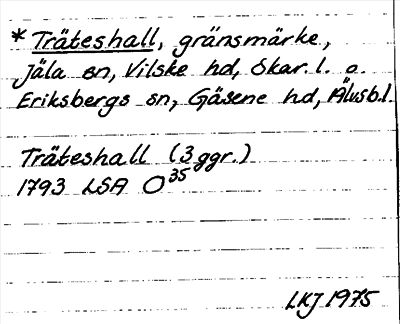 * Träteshall, gränsmärke,
Jäla sn, Vilske hd, Skar. l. o.
Eriksbergs sn, Gäsene hd, Älvsb.l.
Träteshall (3 ggr.)
1793 LSA O35
LKJ 1975